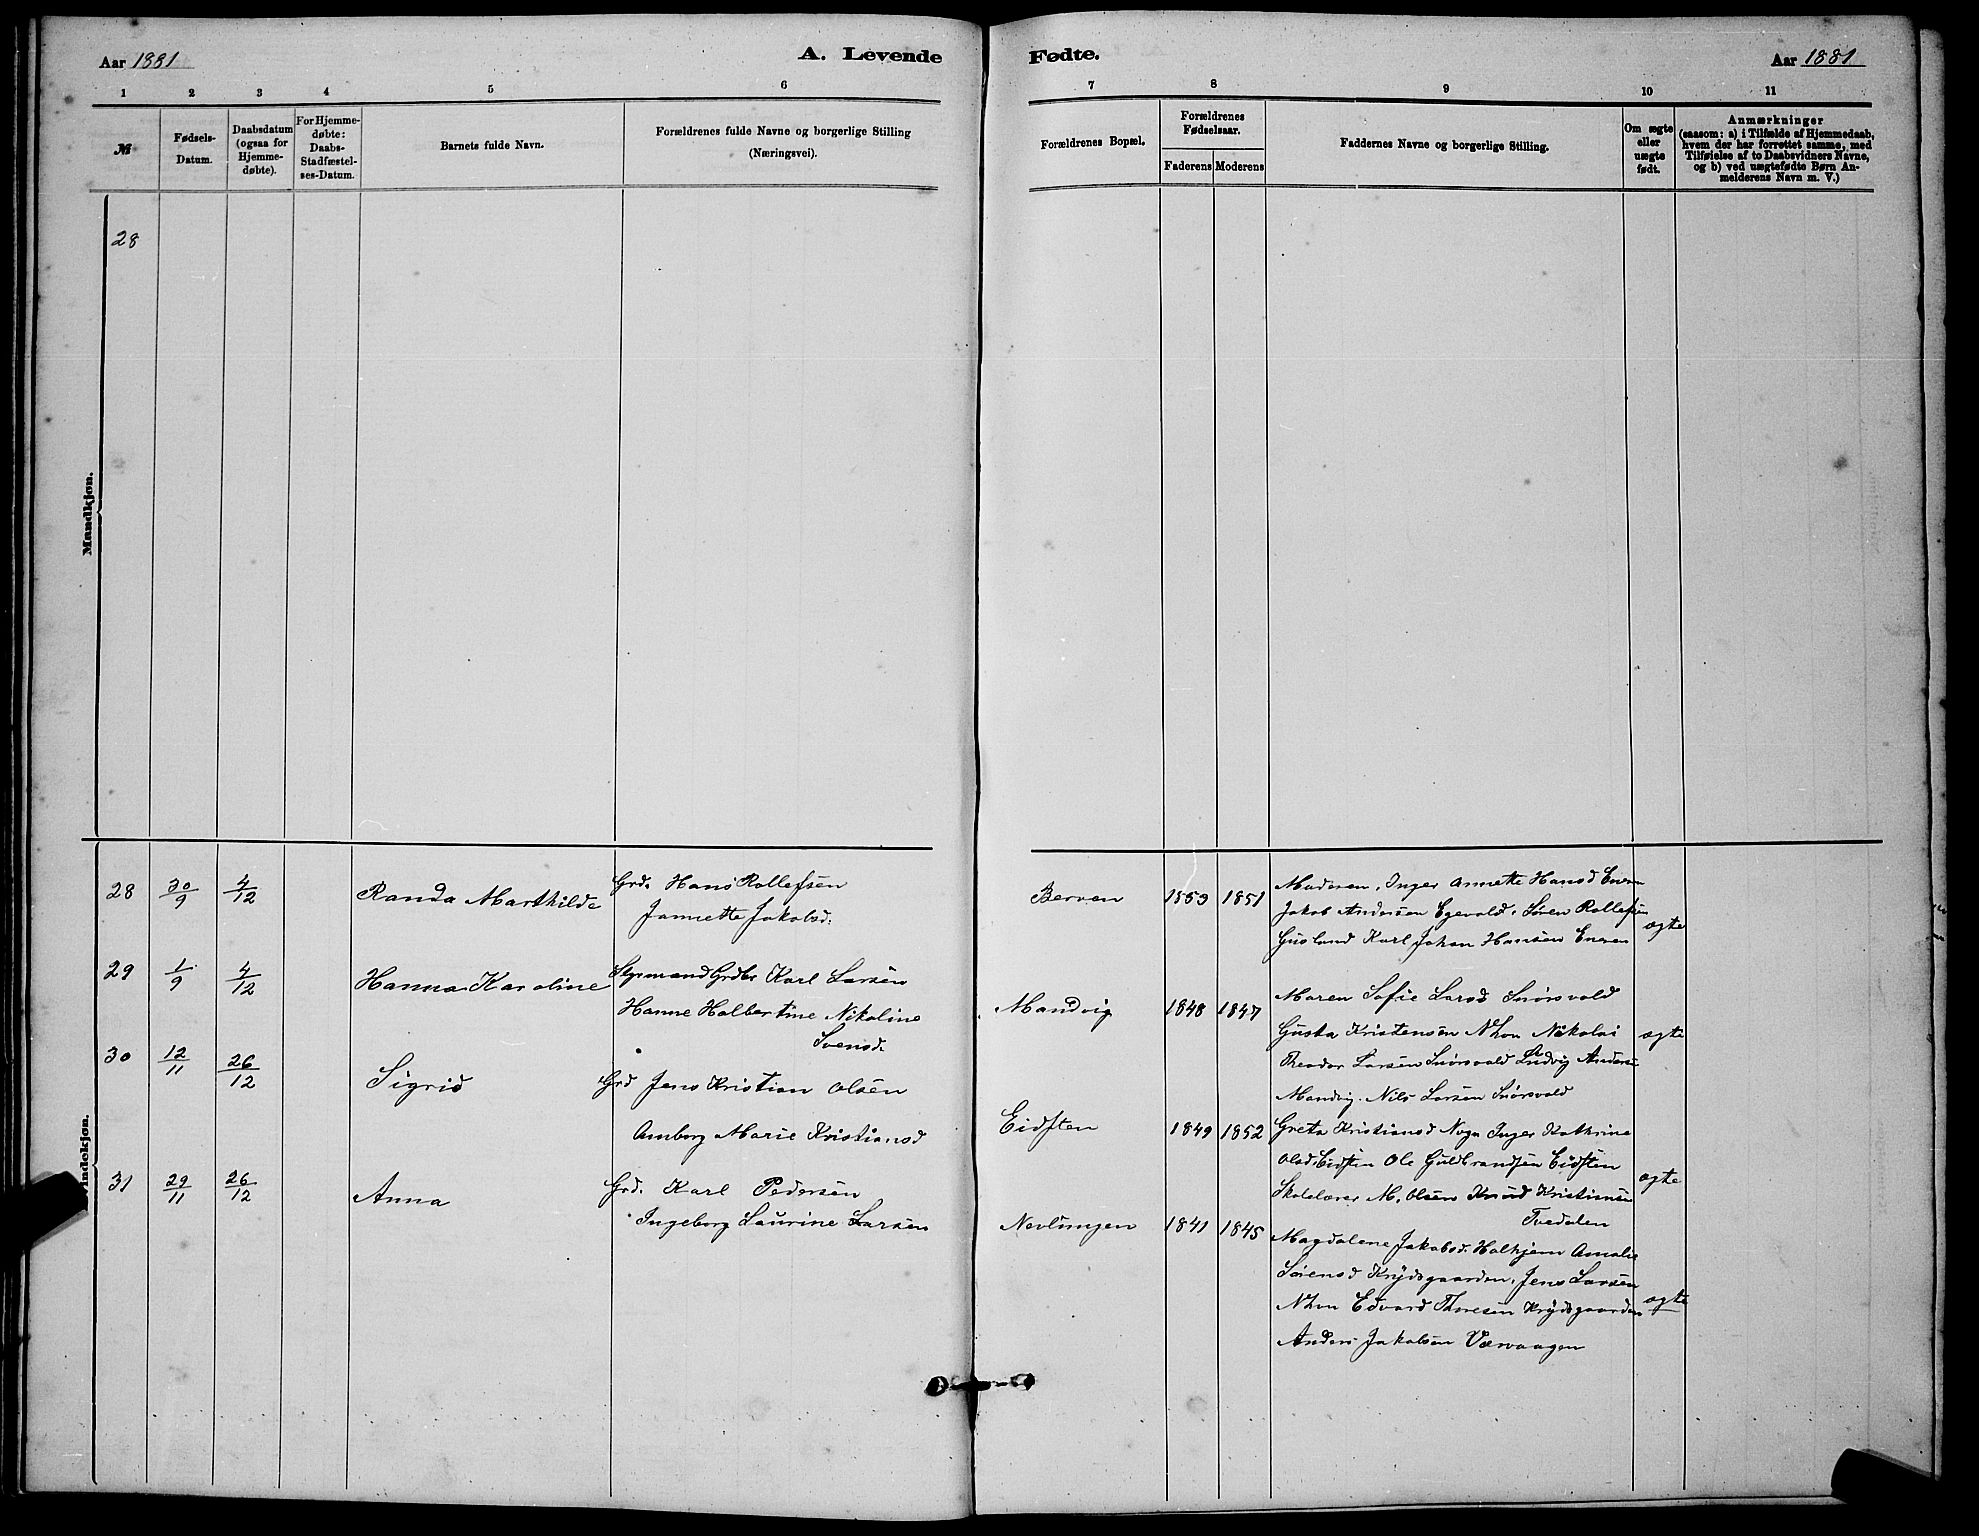 Aar 1881
A. Levende
1 2 3 4 5 6
№
Fødsels-
Datum.
Daabsdatum
(ogsaa for
Hjemme-
døbte).
For Hjemme-
døbte:
Daabs-
Stadfæstel-
ses-Datum.
Barnets fulde Navn.
Forældrenes fulde Navne og borgerlige Stilling
(Næringsvei).
Mandkjøn.
28
28 30/9 4/12 Randa Marthilde
Grd. Hans Rollefsen
Jannette Jakobsd.
29 1/9 4/12 Hanna Karoline
Karl Larsen
Hanne Halbertine Nikoline
Svensd.
30 12/11 26/12 Sigrid
Grd Jens Kristian Olsen
Amborg Marie Kristiansd
Kvindekjøn.
31 29/11 26/12 Anna
Grd. Karl Pedersen
Ingeborg Laurine Larsen
Fødte.
Aar 1881
7 8 9 10 11
Forældrenes Bopæl.
Forældrenes
Fødselsaar.
Faderens Moderens
Faddernes Navne og borgerlige Stilling.
Om ægte
eller
uægte
født.
Anmærkninger
(saasom: a) i Tilfælde af Hjemmedaab,
hvem der har forrettet samme, med
Tilføielse af to Daabsvidners Navne,
og b) ved uægtefødte Børn An-
melderens Navn m. V.)
Bervan 1853 1851
Moderen, Inger Annette Hansd
Jakob Andersen Søren Rollefsen
Gusland Karl Johan Hansen
ægte
Mandvig 1848 1847
Maren Sofie Larsd Snørsvold
Gusta Kristensen Nhvn Nikolai
Theodor Larsen Snørsvold Ludvig Anders
Mandvig. Nils Larsen Snørsvold
ægte
Eidsten 1849 1852
Greta Kristiansd Inger Kathrine
Olsd. Eidsten Ole Guldbrandsen Eidsten
Skolelærer M. Olsen Knud Kristiansen
Tvedalen
ægte
Nevlungen 1841 1845
Magdalene Jakobsd. Halhjem Amalie
Sørensd Krydsgaarden, Jens Larsen
Nhvn Edvard Thoresen Krydsgaarden
Anders Jakobsen Værvaagen
ægte